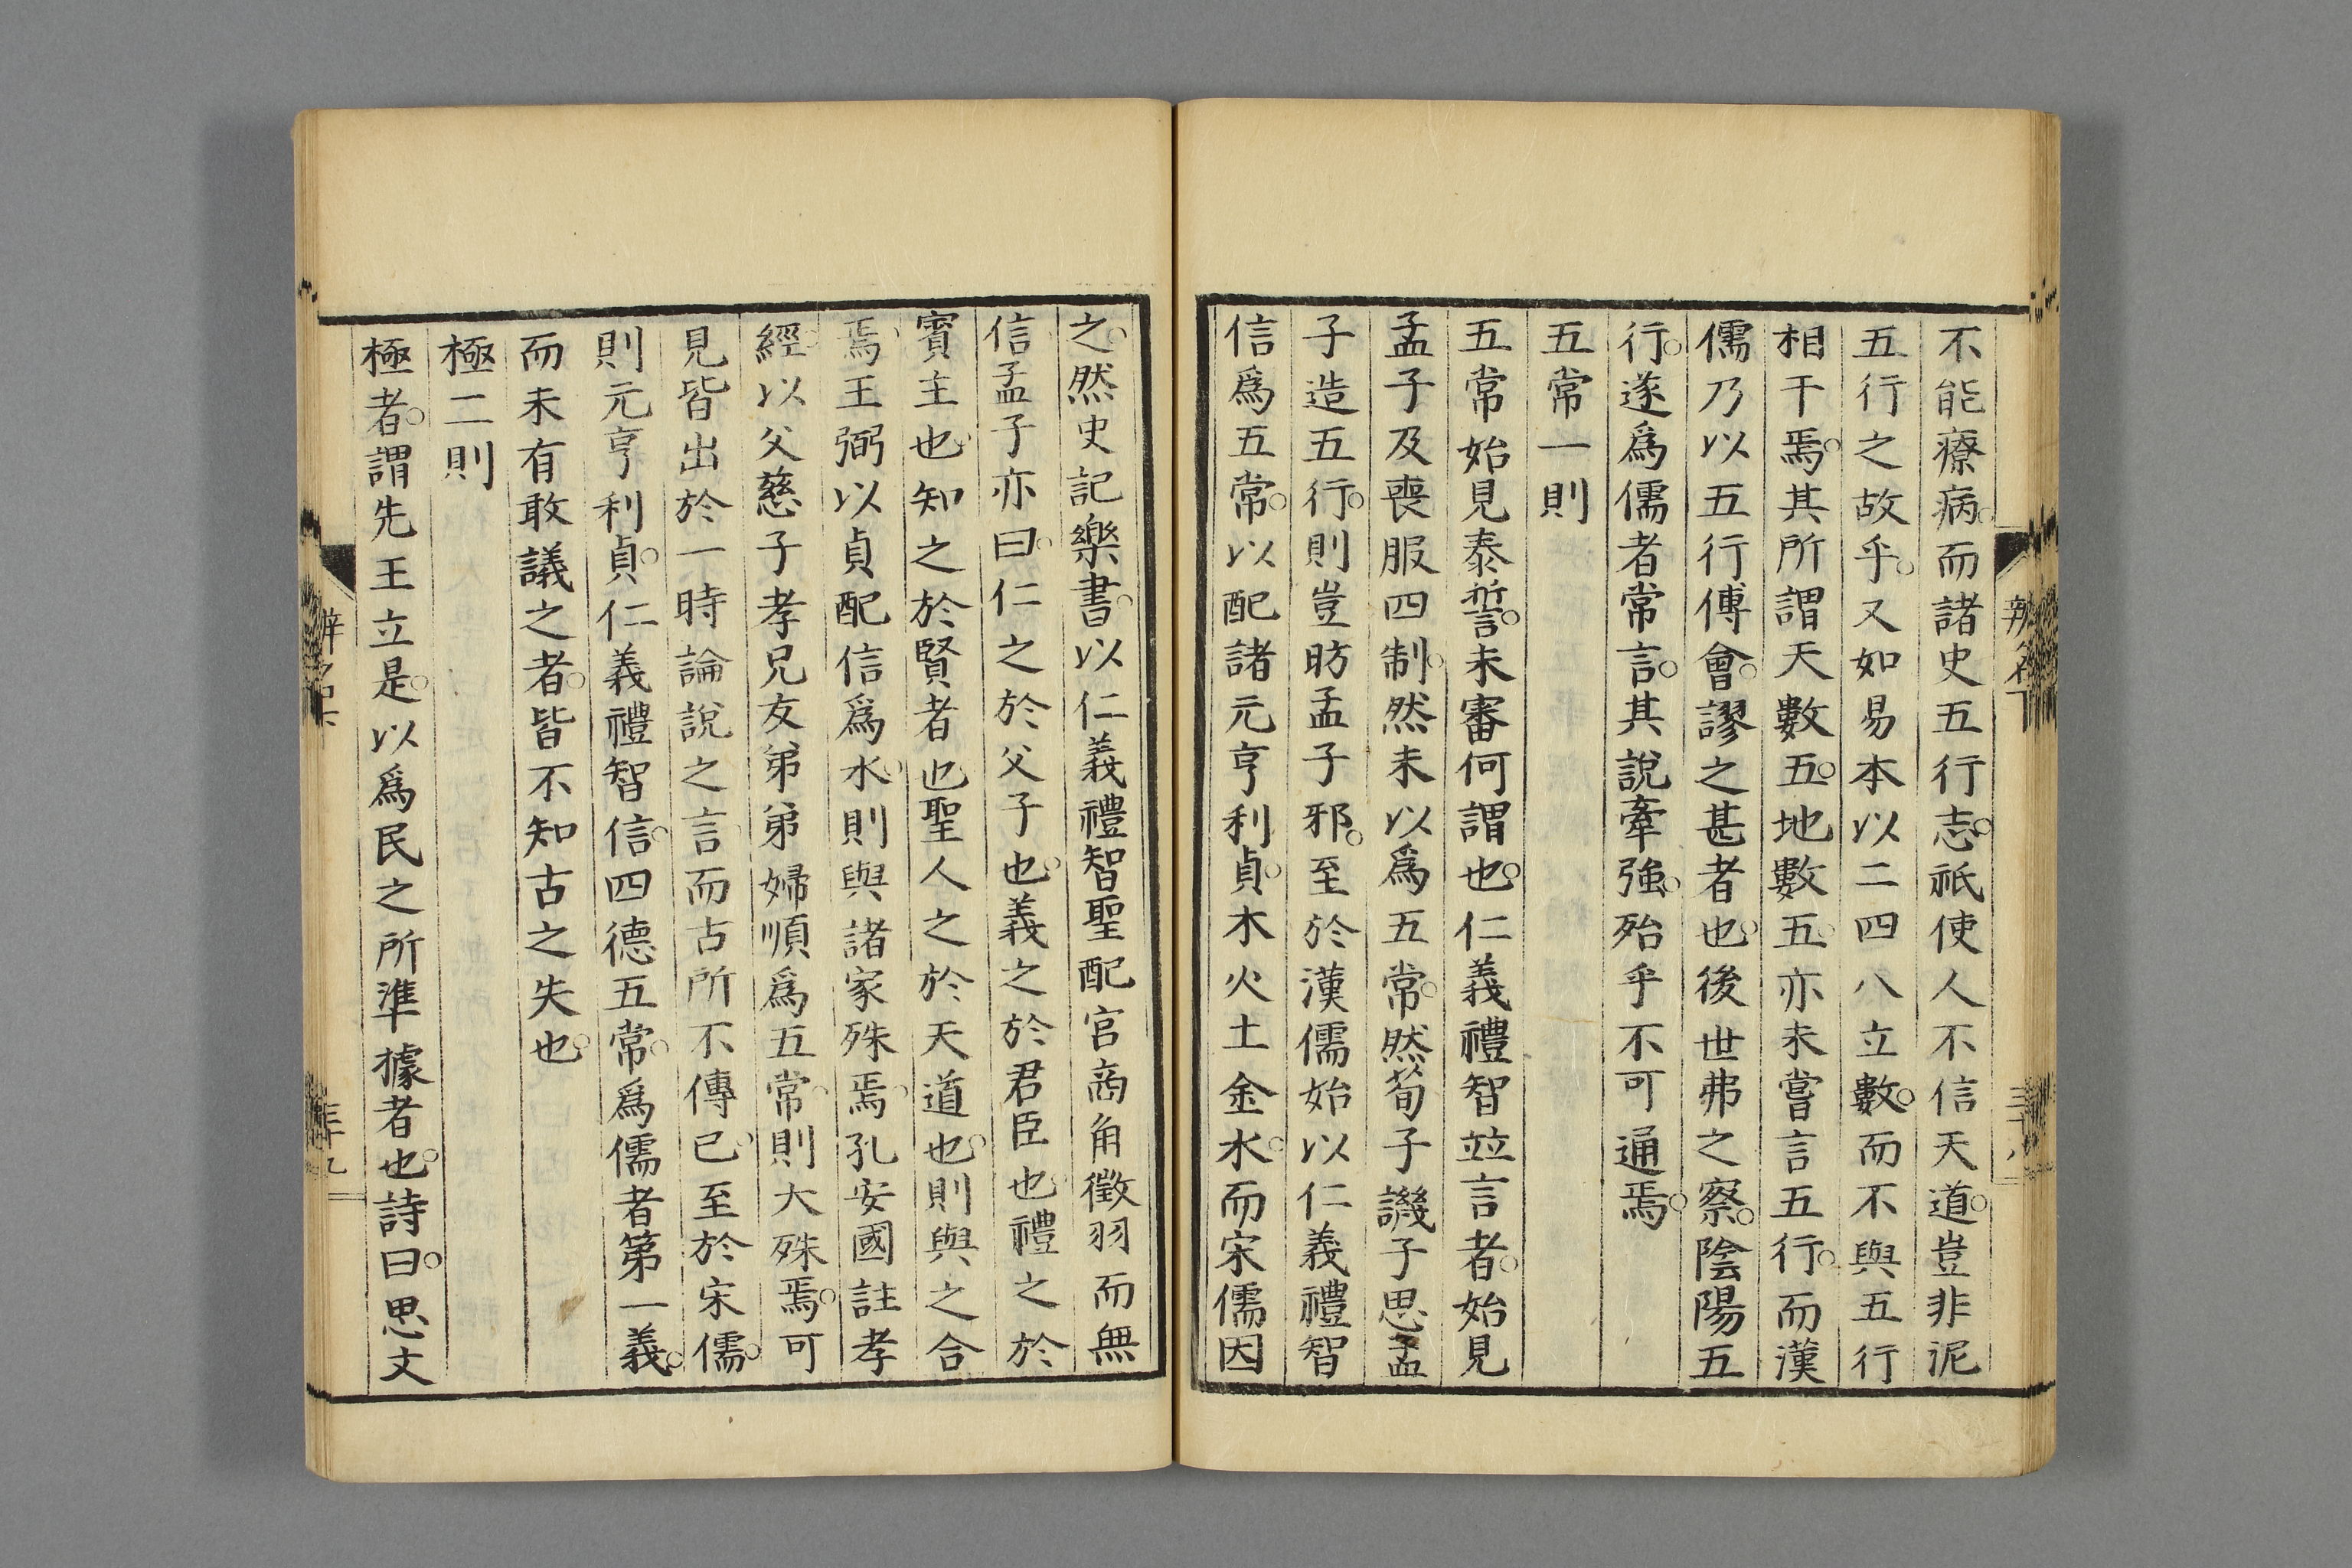 不能療病。而諸史五行志。祇使人不信天道。豈非泥
五行之故乎。又如易本以二四八立數。而不與五行
相干焉。其所謂天數五。地數五。亦未嘗言五行。而漢
儒乃以五行傅會。謬之甚者也。後世弗之察。陰陽五
行。遂爲儒者常言。其說牽強。殆乎不可通焉。
五常一則
五常始見泰誓。未審何謂也。仁義禮智竝言者。始見
孟子及喪服四制。然未以爲五常。然荀子譏子思孟
子造五行。則豈昉孟子邪。至於漢儒始以仁義禮智
信爲五常。以配諸元亨利貞。木火土金水。而宋儒因
之。然史記樂書。以仁義禮智聖配宮商角徵羽而無
信孟子亦曰。仁之於父子也。義之於君臣也。禮之於
賓主也。知之於賢者也。聖人之於天道也。則與之合
焉。王弼以貞配信爲水。則與諸家殊焉。孔安國註孝
經。以父慈子孝兄友弟弟婦順爲五常。則大殊焉。可
見皆出於一時論說之言。而古所不傳已。至於宋儒。
則元亨利貞。仁義禮智信。四德五常。爲儒者第一義。
而未有敢議之者。皆不知古之失也。
極二則
極者。謂先王立是。以爲民之所準據者也。詩曰。思文